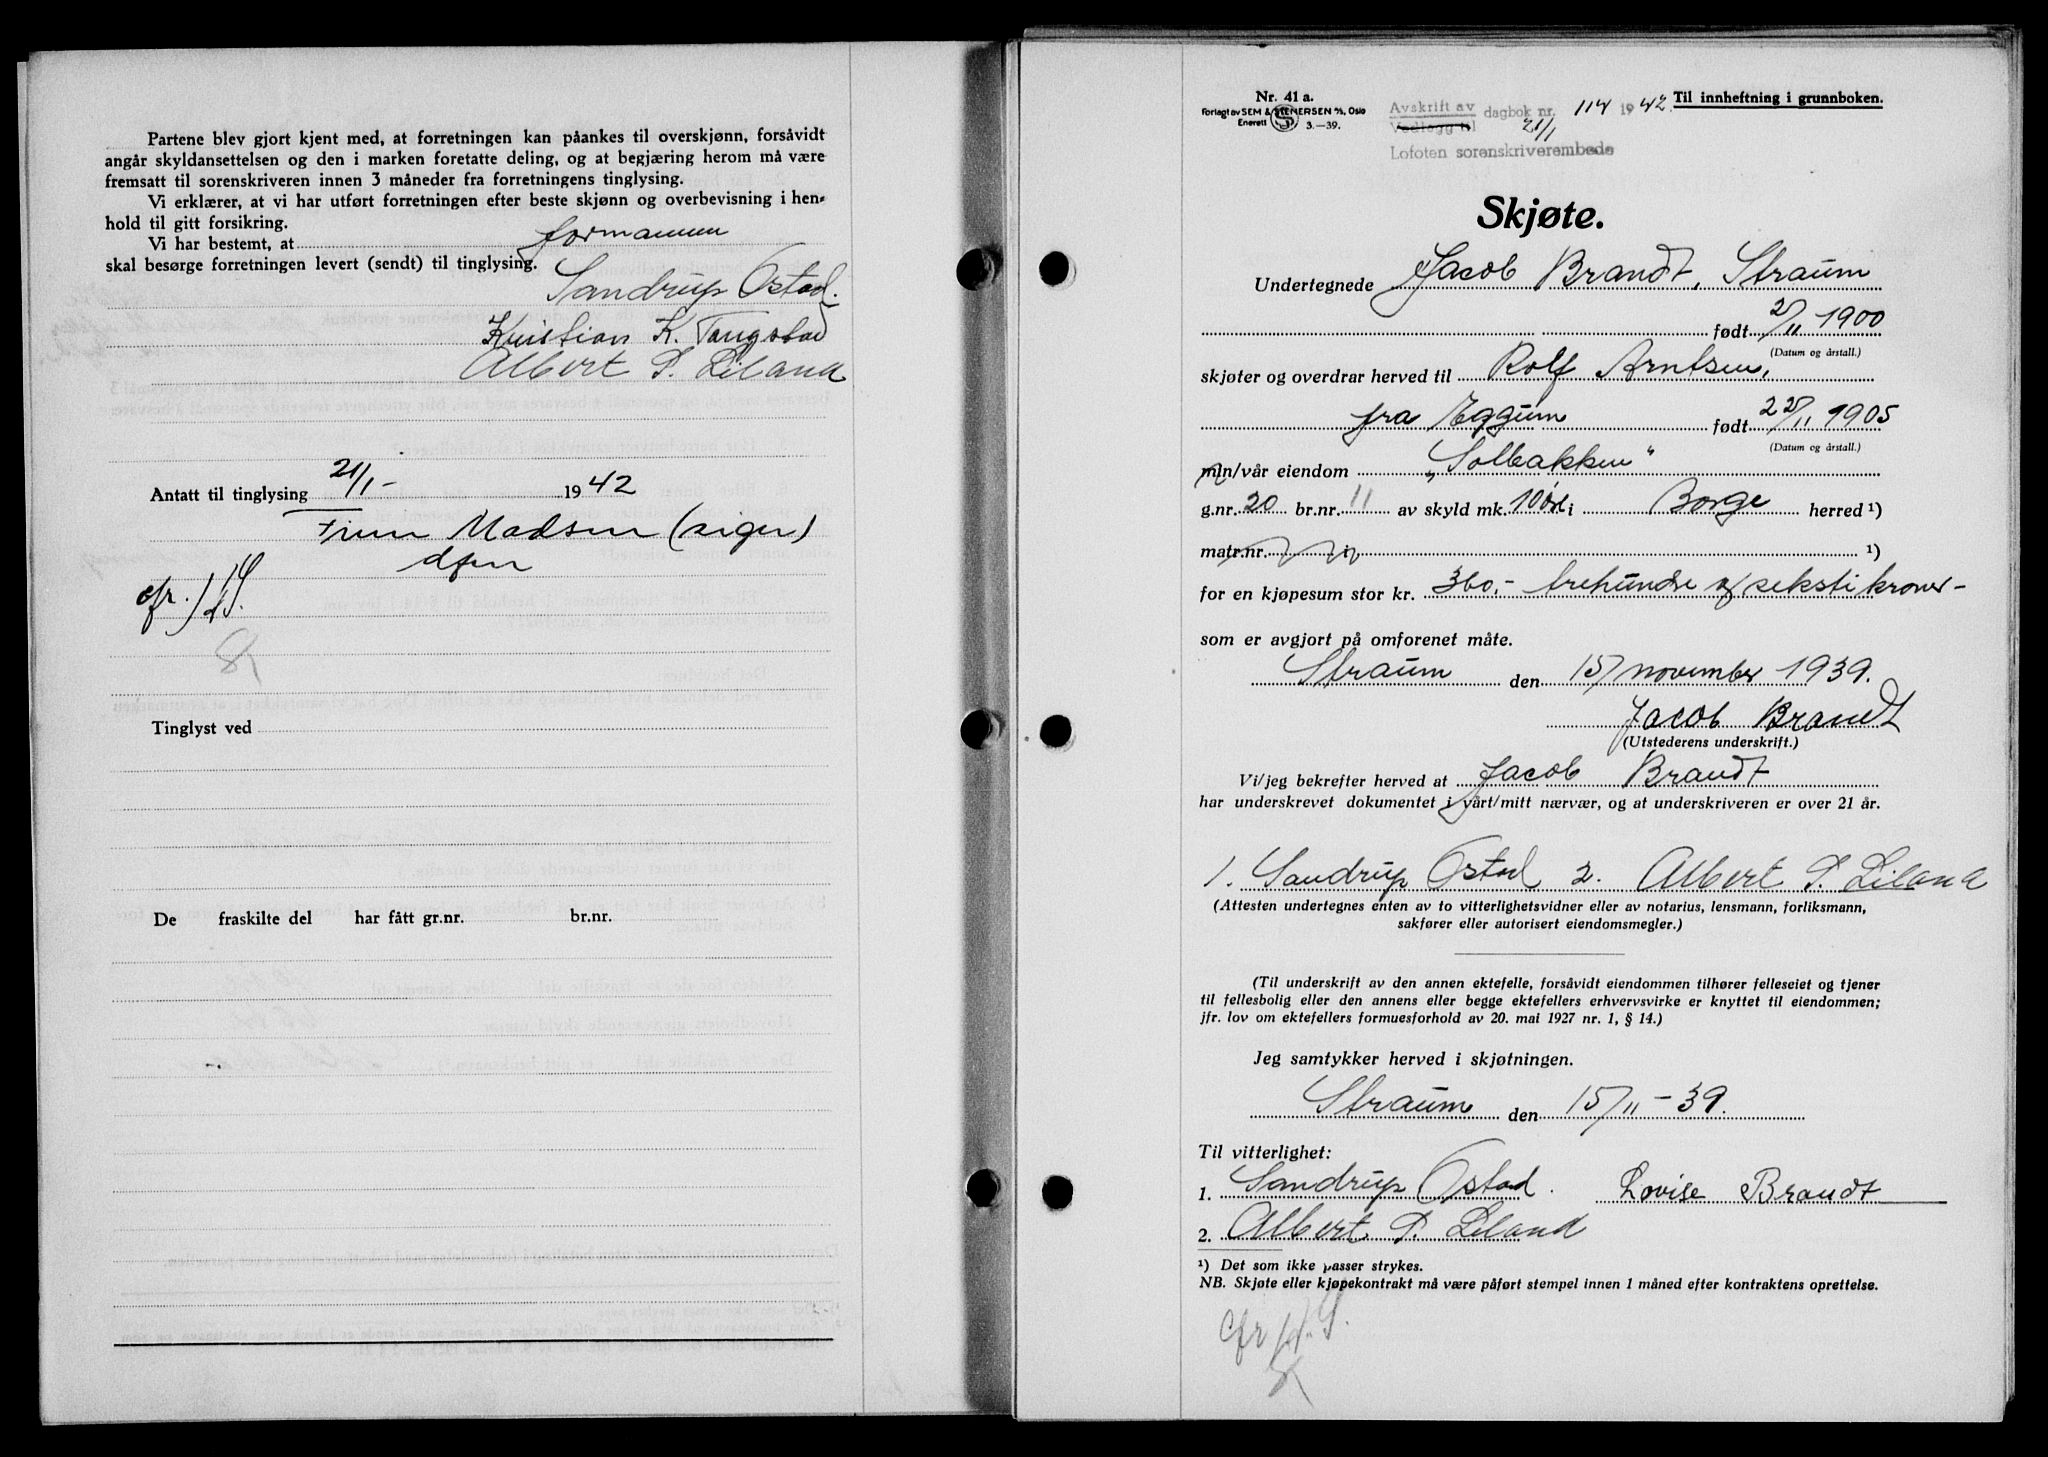 Partene blev gjort kjent med, at forretningen kan påankes til overskjønn, forsåvidt
angår skyldansettelsen og den i marken foretatte deling, og at begjæring herom må være
fremsatt til sorenskriveren innen 3 måneder fra forretningens tinglysing.
Vi erklærer, at vi har utført forretningen efter beste skjønn og overbevisning i hen-
hold til gitt forsikring.
Vi har bestemt, at formannen
skal besørge forretningen levert (sendt) til tinglysing.
Sandrup Ostad.
Kristian K. Tangstad
Albert P. Liland
Antatt til tinglysing 21/1- 1942
Finn Madsen (siger)
dfm
cfr.
Tinglyst ved
De fraskilte del har fått gr.nr. br.nr.
Nr. 41 a.
Forlagt av SEM & STENERSEN A/S, Oslo
Enerett S 3.—39.
Avskrift av
Vedlegg til
dagbok nr. 114 1942
21/1
Lofoten sorenskriverembede
Til innheftning i grunnboken.
Skjøte.
Undertegnede Jacob Brandt, Straum
født 2/11 1900
(Datum og årstall.)
skjøter og overdrar herved til Rolf Arntsen,
fra Eggum født 22/11 1905
(Datum og årstall.)
min/vår eiendom „Solbakken"
g.nr. 20 br.nr. 11 av skyld mk. 10 øre i Borge herred ¹)
matr.nr. i ¹)
for en kjøpesum stor kr. 360.- trehundre og seksti kroner-
som er avgjort på omforenet måte.
Straum den 15/ november 1939.
Jacob Brandt
(Utstederens underskrift.)
Vi/jeg bekrefter herved at Jacob Brandt
har underskrevet dokumentet i vårt/mitt nærvær, og at underskriveren er over 21 år.
1. Sandrup Ostad 2. Albert P. Liland
(Attesten undertegnes enten av to vitterlighetsvidner eller av notarius, lensmann, forliksmann,
sakfører eller autorisert eiendomsmegler.)
(Til underskrift av den annen ektefelle, forsåvidt eiendommen tilhører felleseiet og tjener
til fellesbolig eller den annens eller begge ektefellers erhvervsvirke er knyttet til eiendommen;
jfr. lov om ektefellers formuesforhold av 20. mai 1927 nr. 1, § 14.)
Jeg samtykker herved i skjøtningen.
Straum den 15/11-39.
Til vitterlighet:
1. Sandrup Ostad. Lovise Brandt
2. Albert P. Liland
¹) Det som ikke passer strykes.
NB. Skjøte eller kjøpekontrakt må være påført stempel innen 1 måned efter kontraktens oprettelse.
cfr